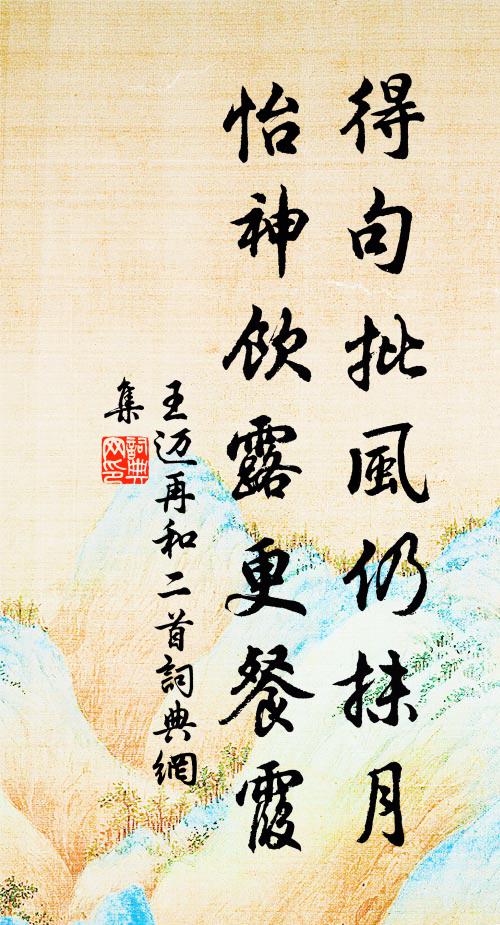 得句批風仍抹月
怡神飲露更餐霞
王迈再和二首詞典網
集
詞典网印